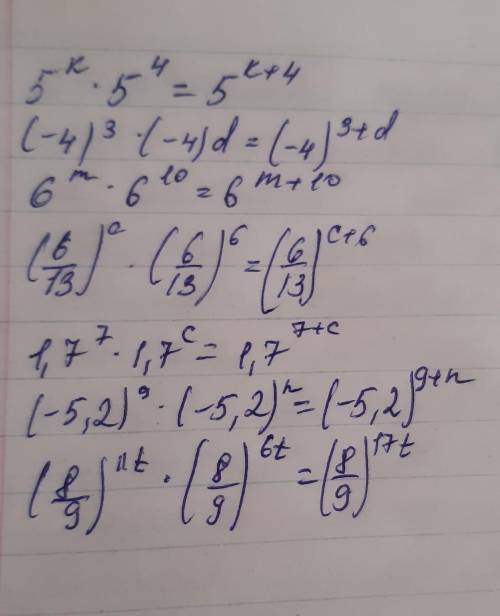 5^k · 5^4 = 5^(k+4)
(-4)^3 · (-4)d = (-4)^(3+d)
6^m · 6^10 = 6^(m+10)
(6/13)^c · (6/13)^6 = (6/13)^(c+6)
1,7^7 · 1,7^c = 1,7^(7+c)
(-5,2)^9 · (-5,2)^n = (-5,2)^(9+n)
(8/9)^11t · (8/9)^6t = (8/9)^17t